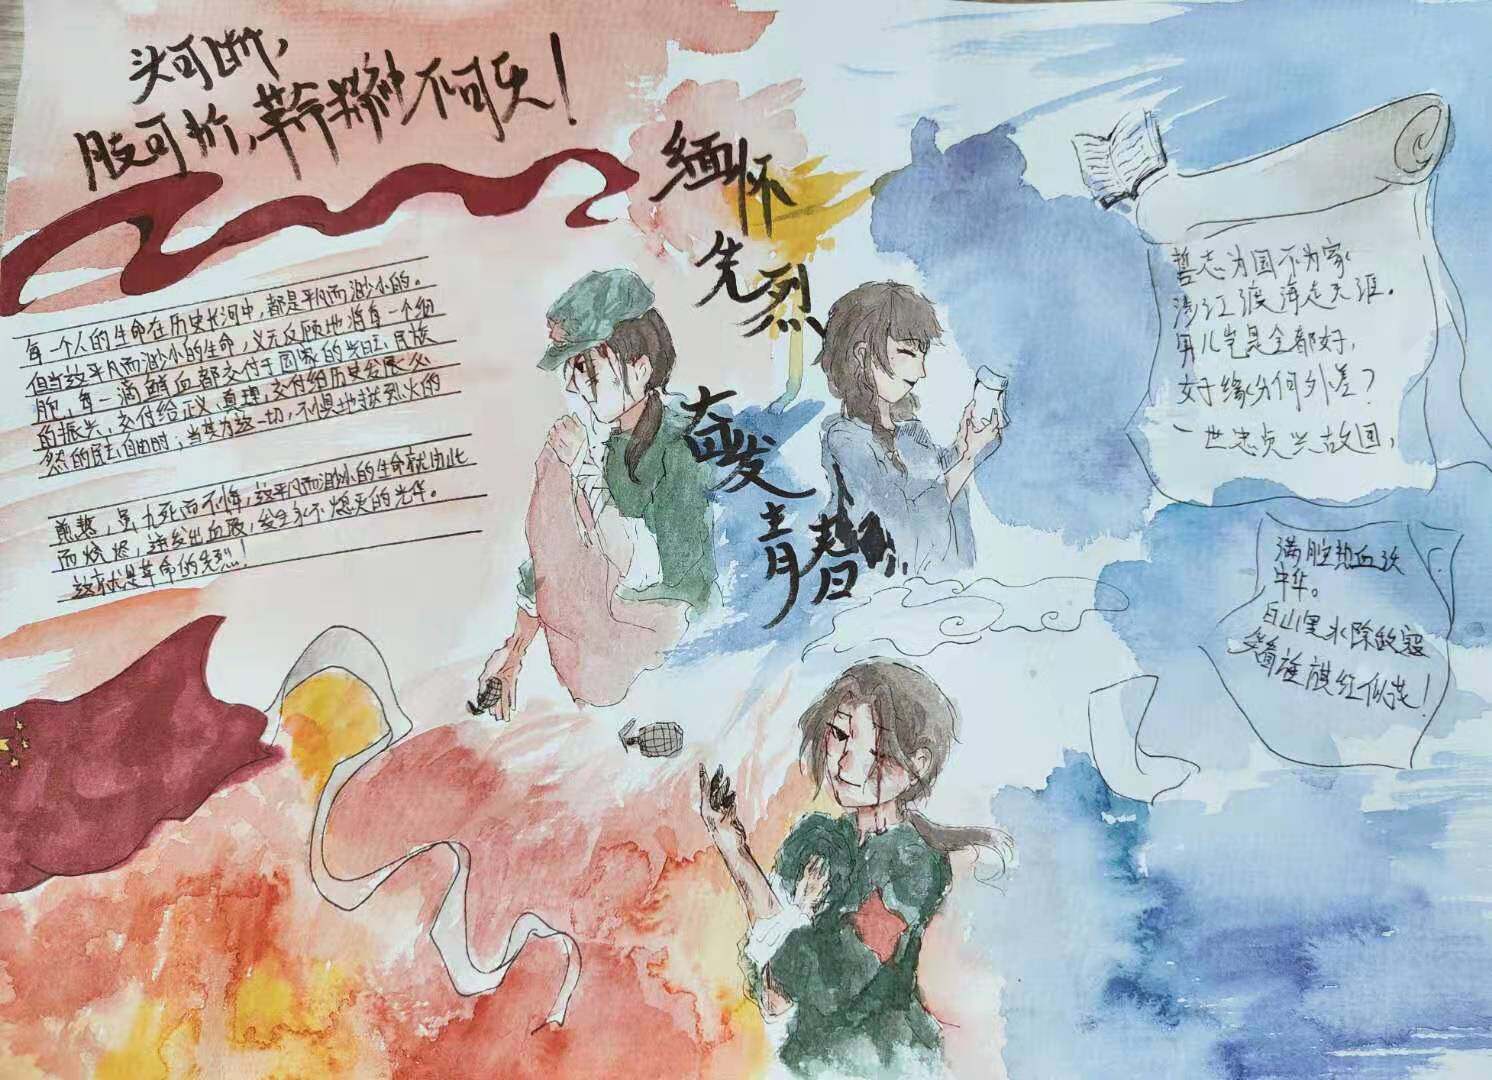 头可断，
股可折，革命精神不可灭！
缅怀
先烈
奋发
青春
每一个人的生命在历史长河中，都是平凡而渺小的。
但当这平凡而渺小的生命，义无反顾地将每一个细
胞，每一滴鲜血都交付于国家的 民族
的振兴，交付给正义、真理，交付给历史发展必
然的 自由时；当其为这一切，不惧地狱烈火的
煎熬，虽九死而不悔，这平凡而渺小的生命就由此
而 ，迸发出血液，发生永不熄灭的光华。
这就是革命的先烈！
誓志为国不为家
涉江渡海走天涯。
男儿岂是全都好，
女子缘分何外差？
一世忠贞兴故国，
满腔热血沃
中华。
白山黑水除敌寇
笑看旌旗红似花！